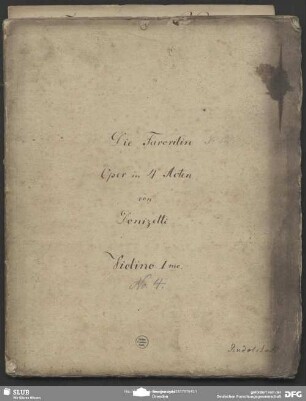 Die Favoritin
Oper in 4 Acten
von
Donizetti
Violino 1mo.
No. 4.
SLUB
Wir führen Wissen.
Dresden
gefördert von der
Deutschen Forschungsgemeinschaft
DFG